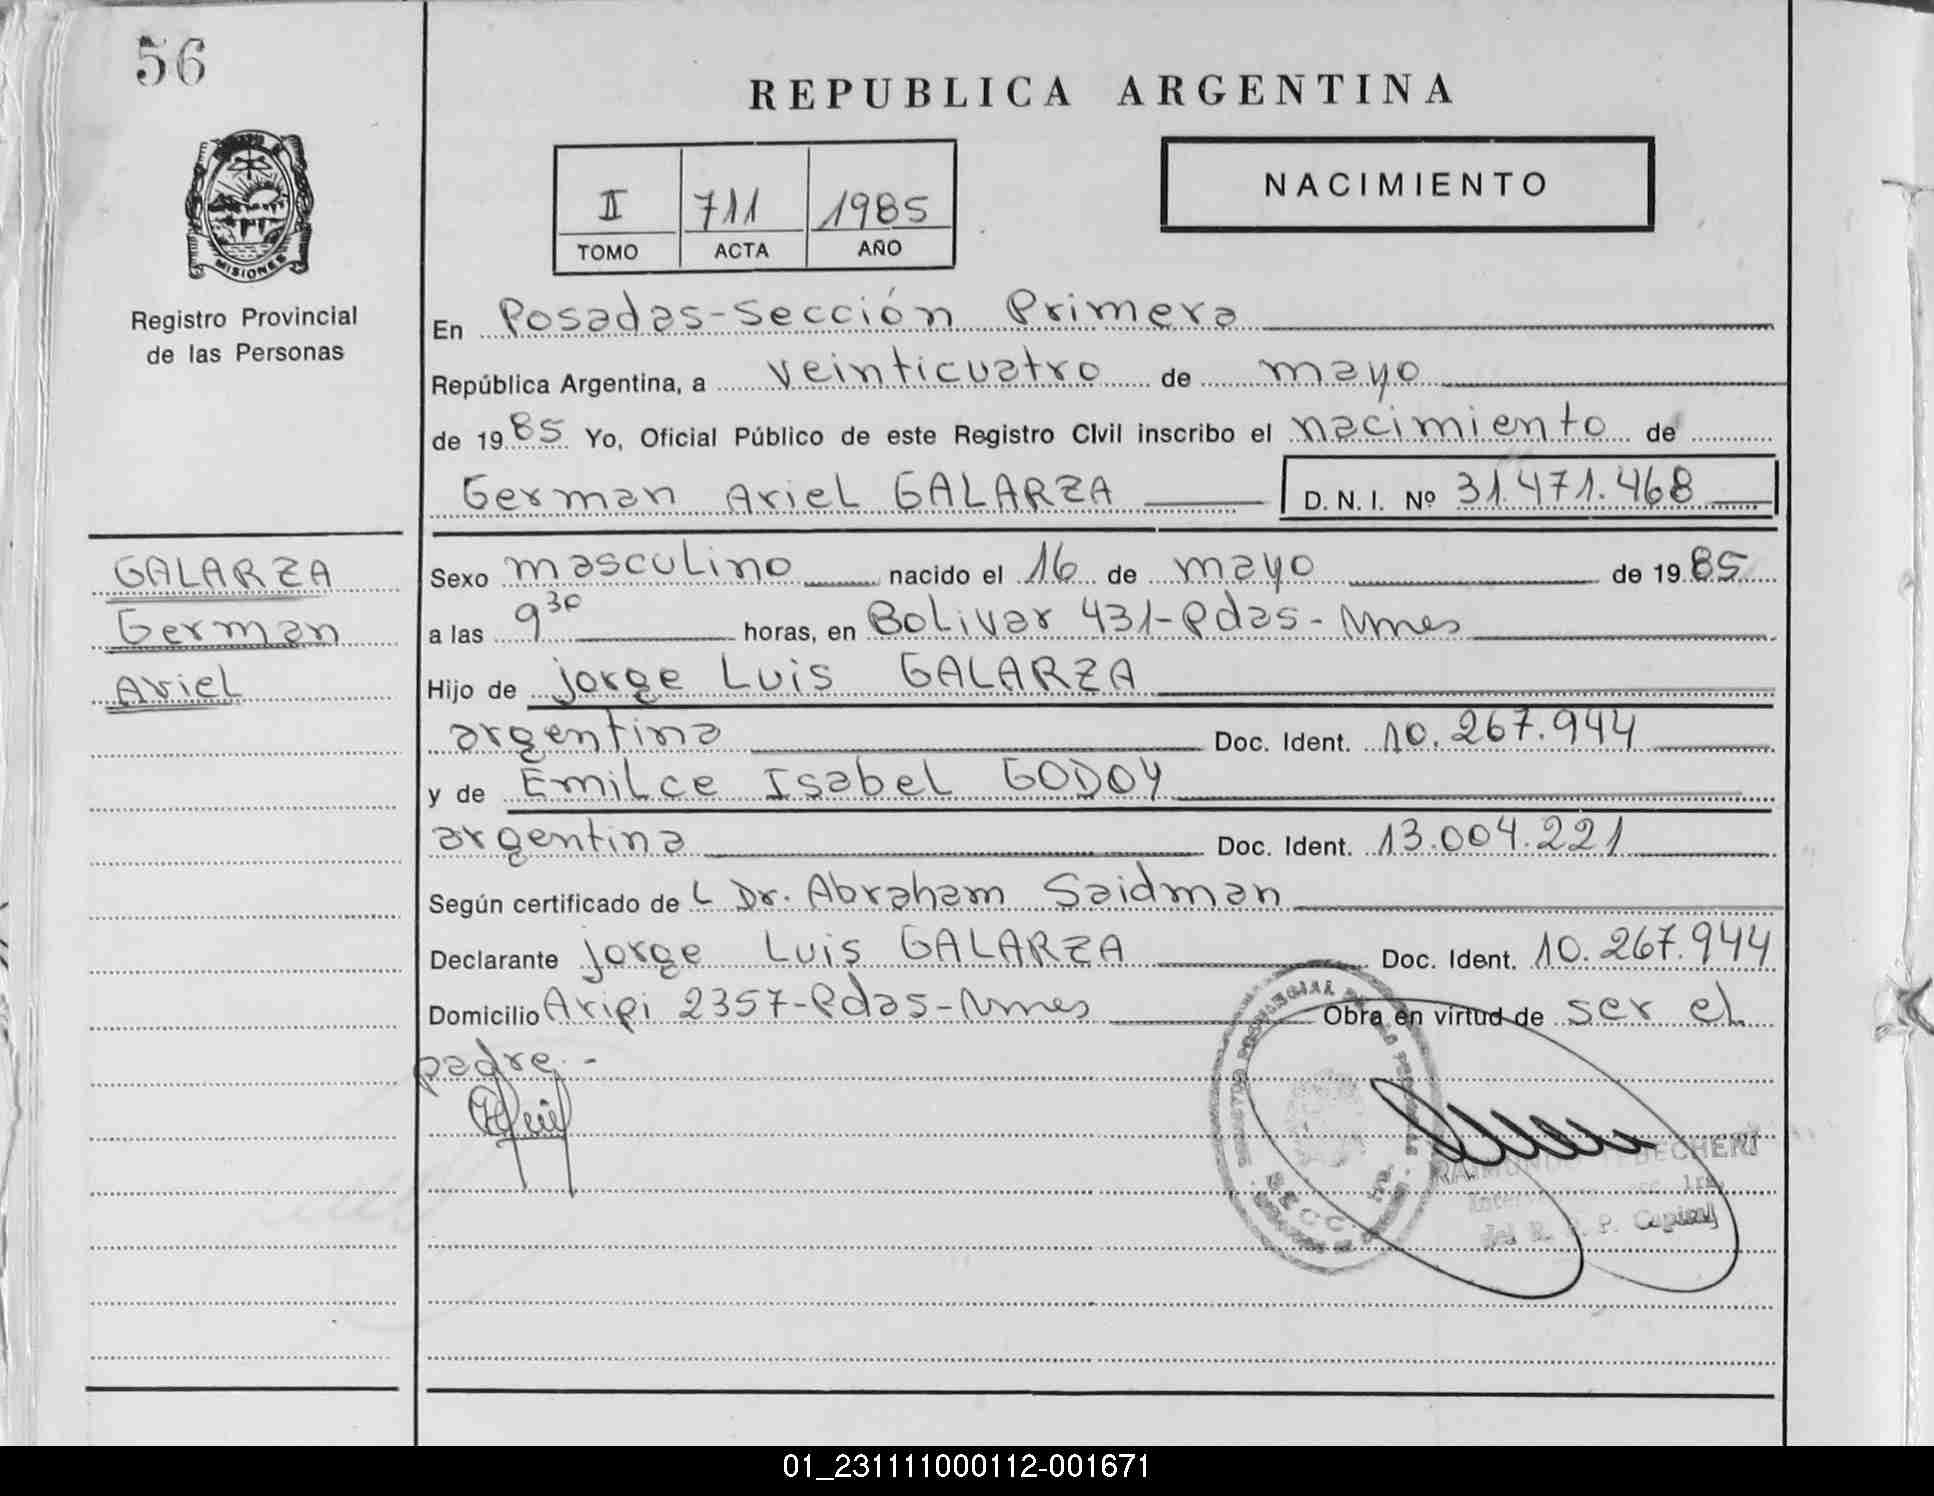 56
REPUBLICA ARGENTINA
II 711 1985
TOMO ACTA AÑO
NACIMIENTO
MISIONES
Registro Provincial
de las Personas
En Posadas-Sección Primera
República Argentina, a veinticuatro de mayo
de 1985 Yo, Oficial Público de este Registro Civil inscribo el nacimiento de
German Ariel GALARZA D. N. I. Nº 31.471.468
GALARZA
German
Ariel
Sexo masculino nacido el 16 de mayo de 1985
a las 9 30 horas, en Bolivar 431-Pdas-Mnes
Hijo de Jorge Luis GALARZA
argentina Doc. Ident. 10.267.944
y de Emilce Isabel GODOY
argentina Doc. Ident. 13.004.221
Según certificado de L Dr. Abraham Saidman
Declarante Jorge Luis GALARZA Doc. Ident. 10.267.944
Domicilio Aripi 2357-Pdas-Mnes Obra en virtud de ser el
padre.-
SECC. 1ra.
del R. P. P. Capital
01_231111000112-001671